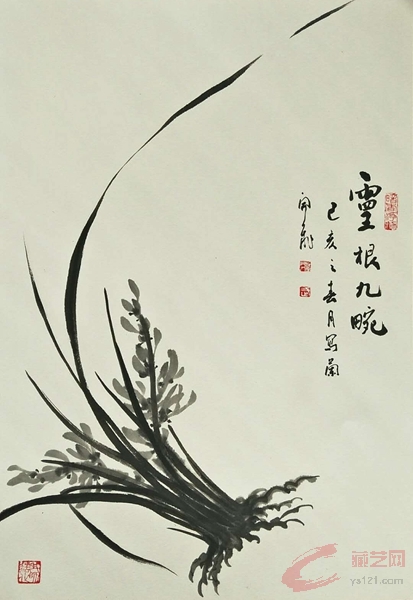 靈根九畹
己亥之春月寫蘭
藏艺网
ys121.com